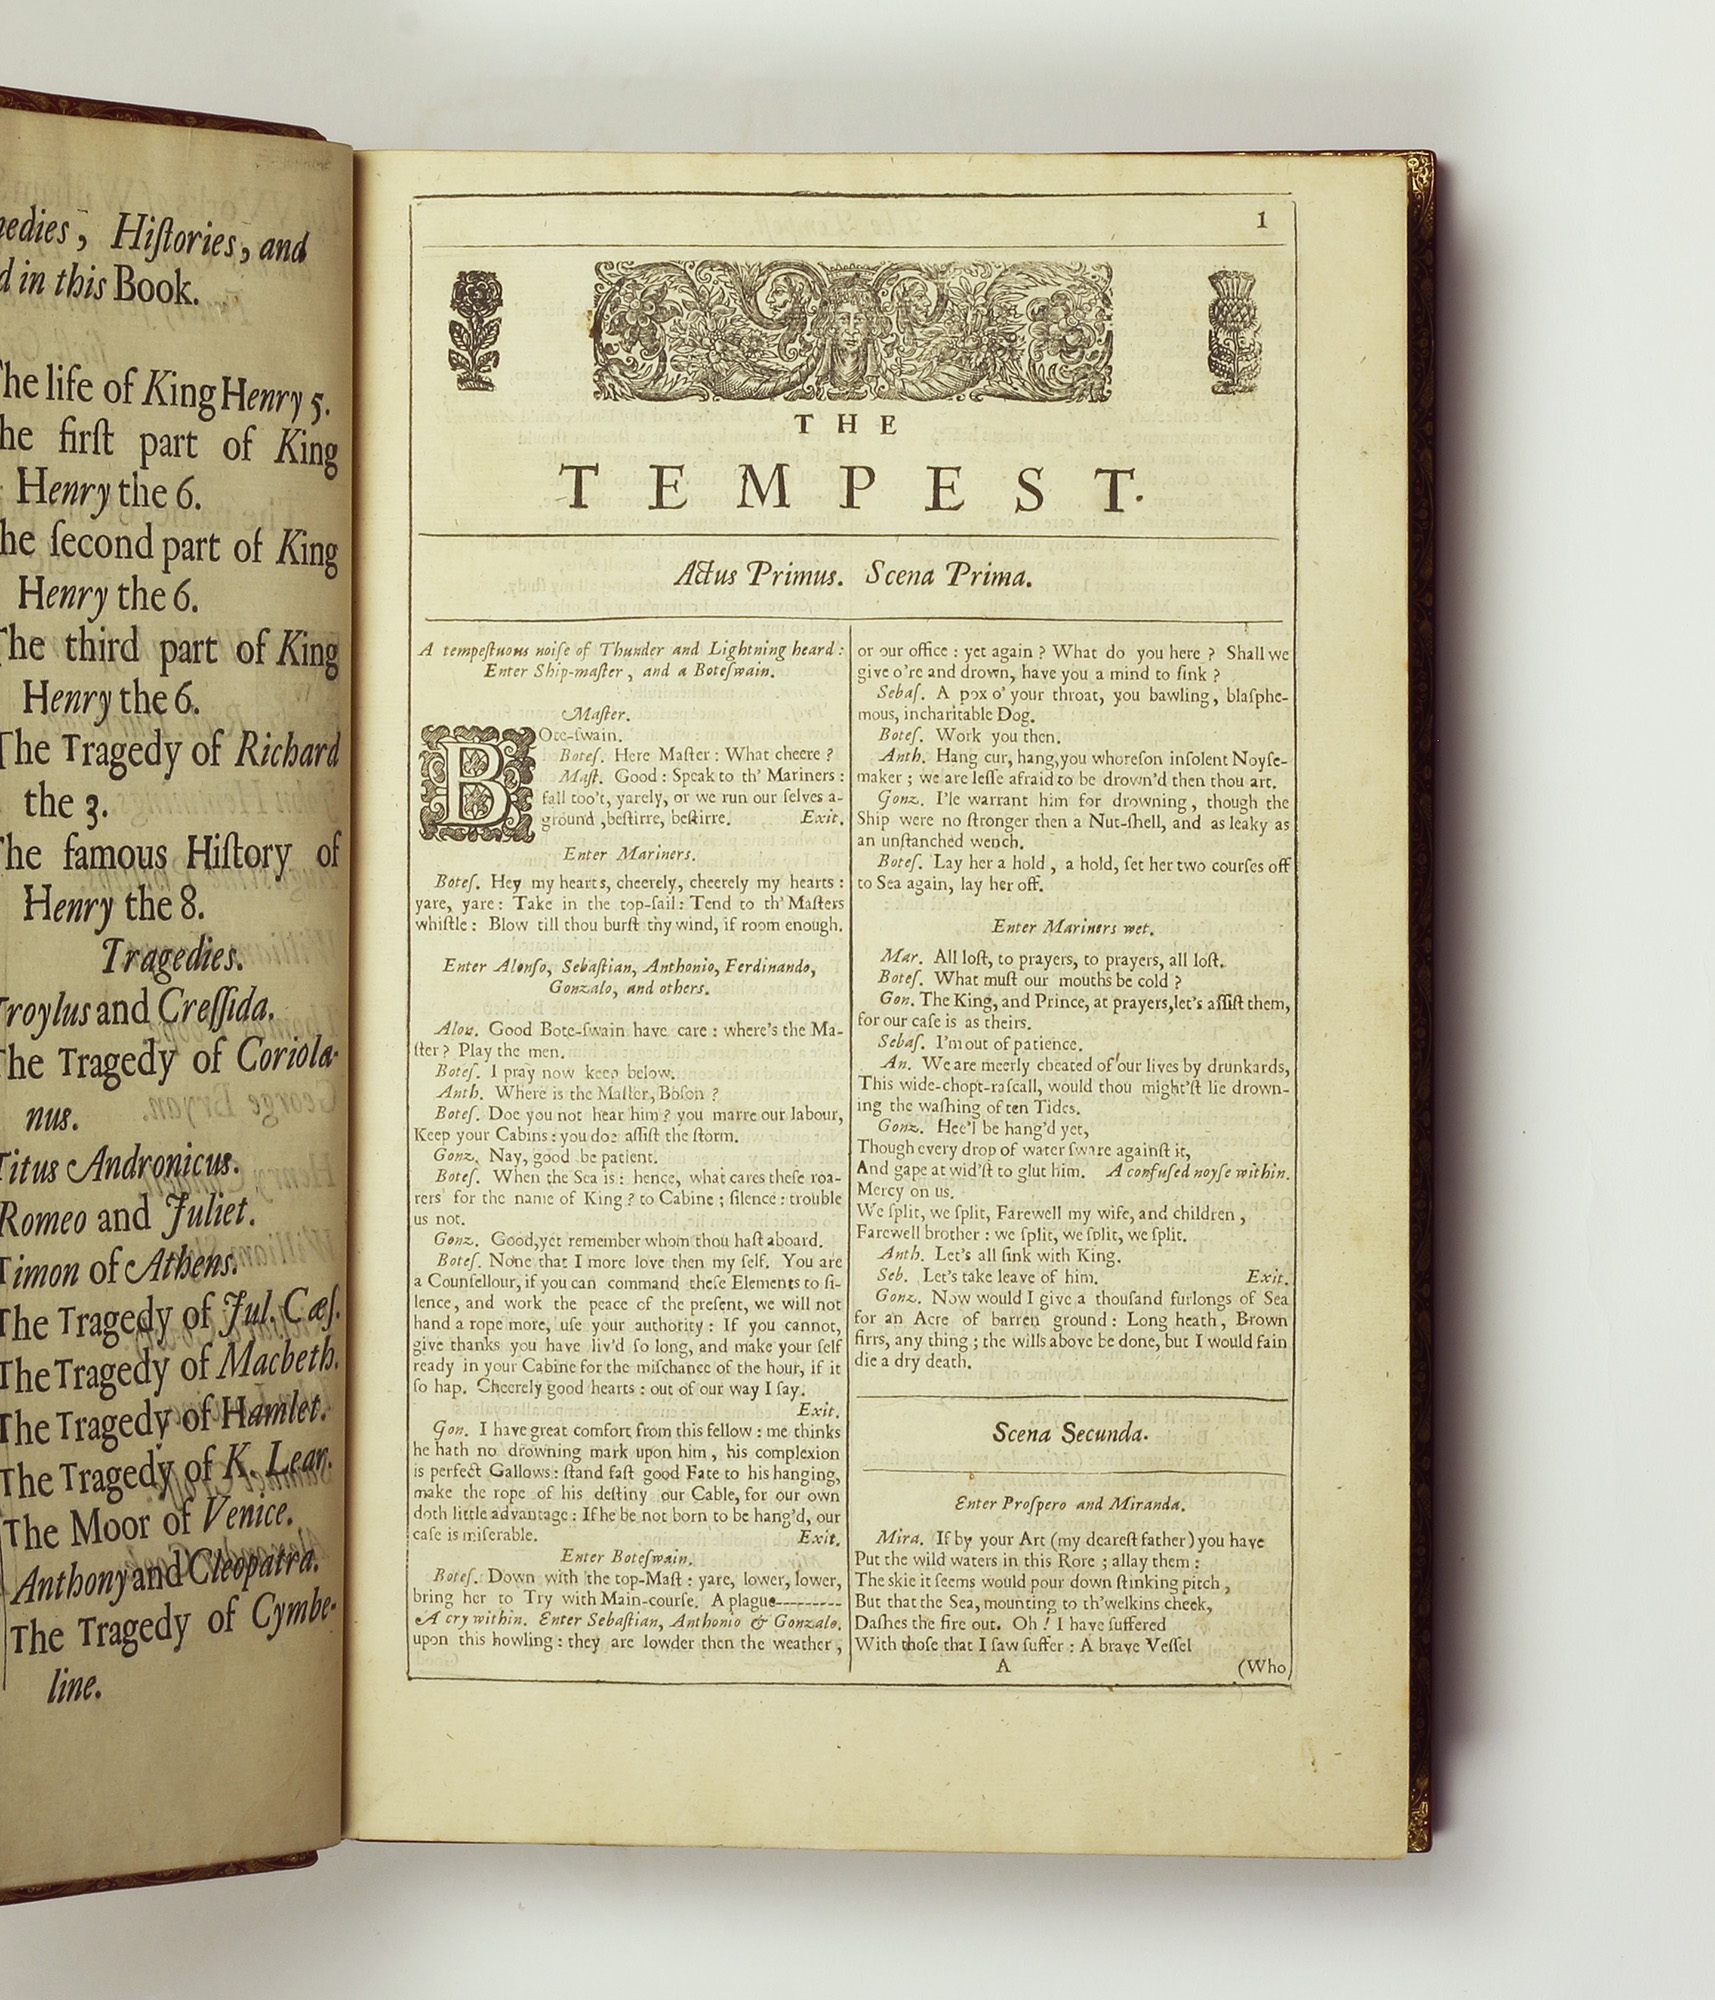 nedies, Hiſtories, and
d in this Book.
The life of King Henry 5.
he firſt part of King
Henry the 6.
he ſecond part of King
Henry the 6.
The third part of King
Henry the 6.
The Tragedy of Richard
the 3.
The famous Hiſtory of
Henry the 8.
Tragedies.
Troylus and Creſſida.
The Tragedy of Coriola-
nus.
Titus Andronicus.
Romeo and Juliet.
Timon of Athens.
The Tragedy of Jul. Cæſ.
The Tragedy of Macbeth.
The Tragedy of Hamlet.
The Tragedy of K. Lear.
The Moor of Venice.
Anthony and Cleopatra.
The Tragedy of Cymbe-
line.
1
THE
TEMPEST.
Actus Primus. Scena Prima.
A tempeſtuous noiſe of Thunder and Lightning heard:
Enter Ship-maſter, and a Boteſwain.
Maſter.
BOte-ſwain.
Boteſ. Here Maſter: What cheere?
Maſt. Good: Speak to th' Mariners:
fall too't, yarely, or we run our ſelves a-
ground, beſtirre, beſtirre. Exit.
Enter Mariners.
Boteſ. Hey my hearts, cheerely, cheerely my hearts:
yare, yare: Take in the top-ſail: Tend to th' Maſters
whiſtle: Blow till thou burſt thy wind, if room enough.
Enter Alonſo, Sebaſtian, Anthonio, Ferdinando,
Gonzalo, and others.
Alon. Good Bote-ſwain have care: where's the Ma-
ſter? Play the men.
Boteſ. I pray now keep below.
Anth. Where is the Maſter, Boſon?
Boteſ. Doe you not hear him? you marre our labour,
Keep your Cabins: you doe aſſiſt the ſtorm.
Gonz. Nay, good be patient.
Boteſ. When the Sea is: hence, what cares theſe roa-
rers for the name of King? to Cabine; ſilence: trouble
us not.
Gonz. Good, yet remember whom thou haſt aboard.
Boteſ. None that I more love then my ſelf. You are
a Counſellour, if you can command theſe Elements to ſi-
lence, and work the peace of the preſent, we will not
hand a rope more, uſe your authority: If you cannot,
give thanks you have liv'd ſo long, and make your ſelf
ready in your Cabine for the miſchance of the hour, if it
ſo hap. Cheerely good hearts: out of our way I ſay.
Exit.
Gon. I have great comfort from this fellow: me thinks
he hath no drowning mark upon him, his complexion
is perfect Gallows: ſtand faſt good Fate to his hanging,
make the rope of his deſtiny our Cable, for our own
doth little advantage: If he be not born to be hang'd, our
caſe is miſerable. Exit.
Enter Boteſwain.
Boteſ. Down with the top-Maſt: yare, lower, lower,
bring her to Try with Main-courſe. A plague---------
A cry within. Enter Sebaſtian, Anthonio & Gonzalo.
upon this howling: they are lowder then the weather,
or our office: yet again? What do you here? Shall we
give o're and drown, have you a mind to ſink?
Sebaſ. A pox o' your throat, you bawling, blaſphe-
mous, incharitable Dog.
Boteſ. Work you then.
Anth. Hang cur, hang, you whoreſon inſolent Noyſe-
maker; we are leſſe afraid to be drown'd then thou art.
Gonz. I'le warrant him for drowning, though the
Ship were no ſtronger then a Nut-ſhell, and as leaky as
an unſtanched wench.
Boteſ. Lay her a hold, a hold, ſet her two courſes off
to Sea again, lay her off.
Enter Mariners wet.
Mar. All loſt, to prayers, to prayers, all loſt.
Boteſ. What muſt our mouths be cold?
Gon. The King, and Prince, at prayers, let's aſſiſt them,
for our caſe is as theirs.
Sebaſ. I'm out of patience.
An. We are meerly cheated of our lives by drunkards,
This wide-chopt-raſcall, would thou might'ſt lie drown-
ing the waſhing of ten Tides.
Gonz. Hee'l be hang'd yet,
Though every drop of water ſware againſt it,
And gape at wid'ſt to glut him. A confuſed noyſe within.
Mercy on us.
We ſplit, we ſplit, Farewell my wife, and children,
Farewell brother: we ſplit, we ſplit, we ſplit.
Anth. Let's all ſink with King.
Seb. Let's take leave of him. Exit.
Gonz. Now would I give a thouſand furlongs of Sea
for an Acre of barren ground: Long heath, Brown
firrs, any thing; the wills above be done, but I would fain
die a dry death.
Scena Secunda.
Enter Proſpero and Miranda.
Mira. If by your Art (my deareſt father) you have
Put the wild waters in this Rore; allay them:
The skie it ſeems would pour down ſtinking pitch,
But that the Sea, mounting to th'welkins cheek,
Daſhes the fire out. Oh! I have ſuffered
With thoſe that I ſaw ſuffer: A brave Veſſel
A (Who